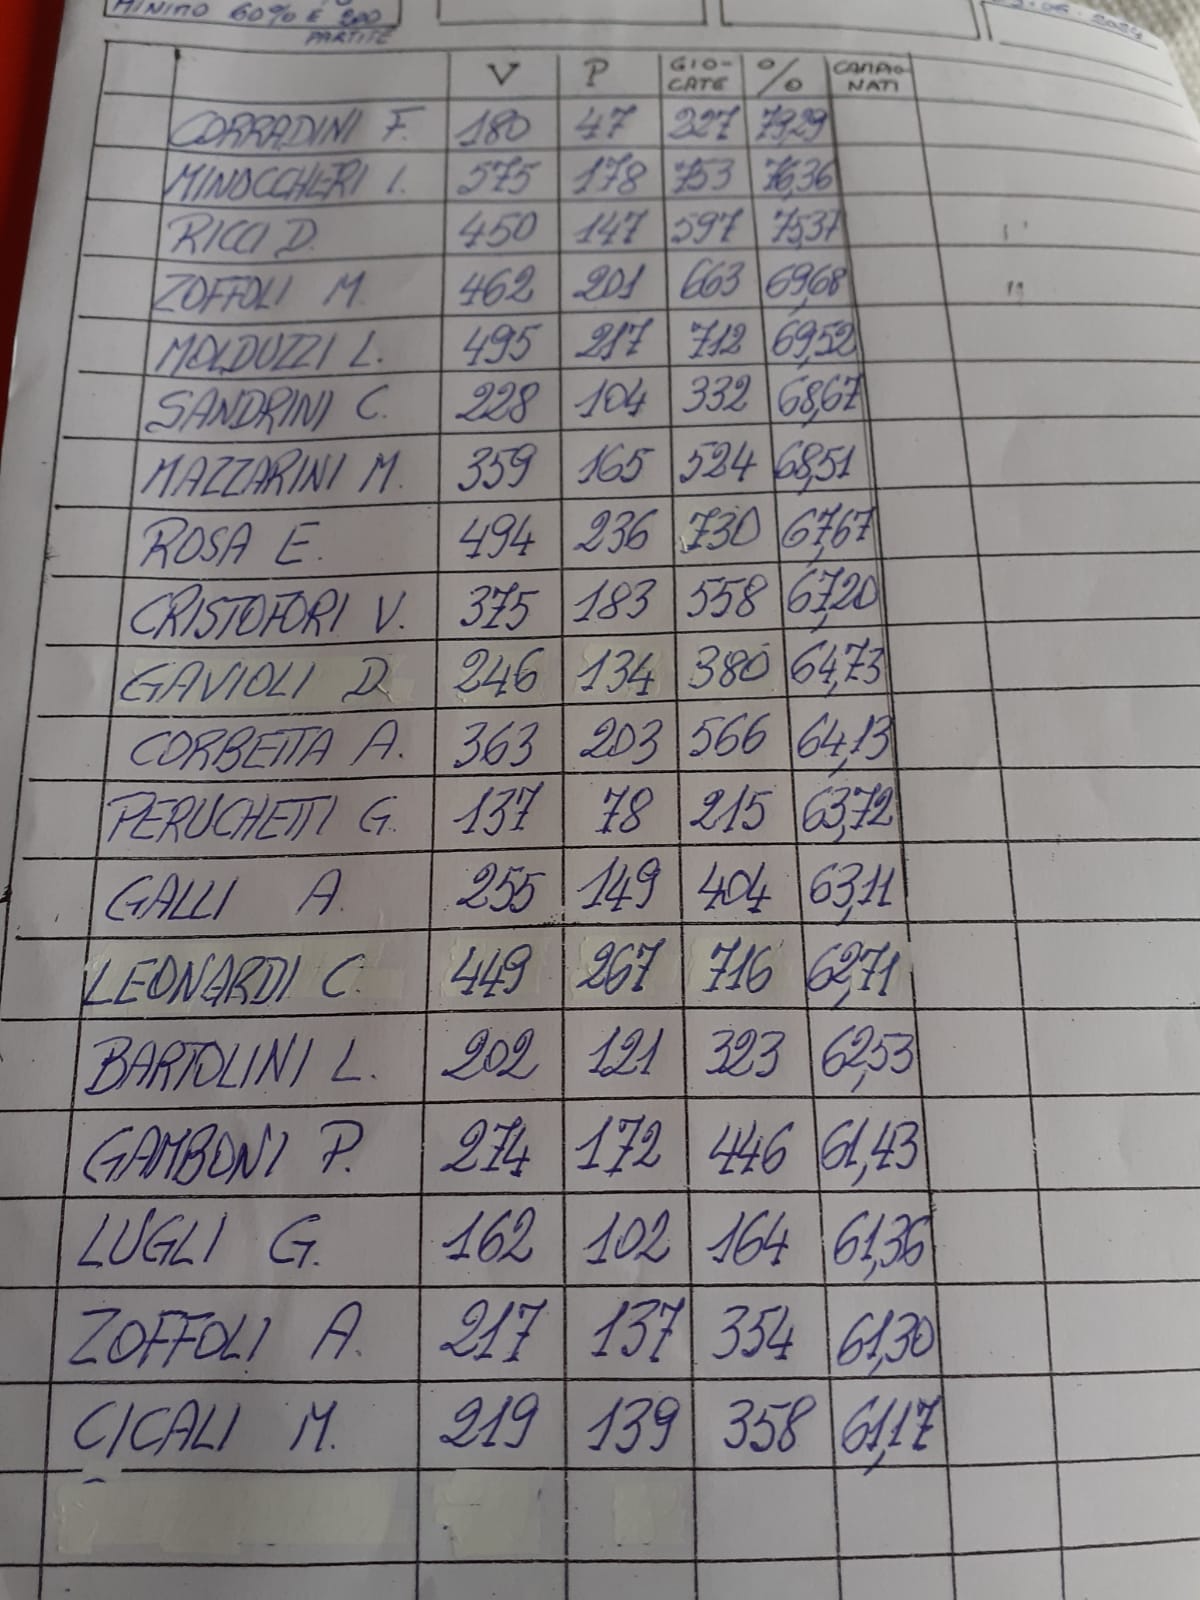 MINIMO 60% E 200
PARTITE
V P GIO- % CAMPIO
CATE NATI
CORRADINI F. 180 47 227 79,29
MINOCCHERI I. 575 178 753 76,36
RICCI D. 450 147 597 75,37
ZOFFOLI M. 462 201 663 69,68
MOLDUZZI L. 495 217 712 69,52
SANDRINI C. 228 104 332 68,67
MAZZARINI M. 359 165 524 68,51
ROSA E. 494 236 730 67,67
CRISTOFORI V. 375 183 558 67,20
GAVIOLI D. 246 134 380 64,73
CORBETTA A. 363 203 566 64,13
PERUCHETTI G. 137 78 215 63,72
GALLI A. 255 149 404 63,11
LEONARDI C. 449 267 716 62,71
BARTOLINI L. 202 121 323 62,53
GAMBONI P. 274 172 446 61,43
LUGLI G. 162 102 164 61,36
ZOFFOLI A. 217 137 354 61,30
CICALI M. 219 139 358 61,17